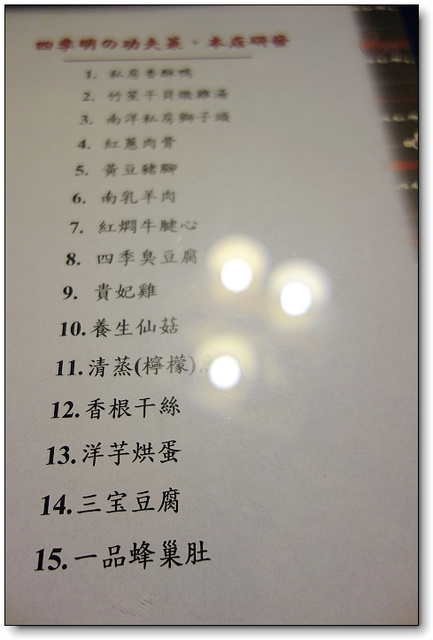 四季明の功夫菜、本店研發
1. 私房香酥鴨
2. 竹笙干貝燉雞湯
3. 南洋私房獅子頭
4. 紅蔥肉骨
5. 黃豆豬腳
6. 南乳羊肉
7. 紅燜牛腱心
8. 四季臭豆腐
9. 貴妃雞
10. 養生仙菇
11. 清蒸(檸檬)
12. 香根干絲
13. 洋芋烘蛋
14. 三宝豆腐
15. 一品蜂巢肚